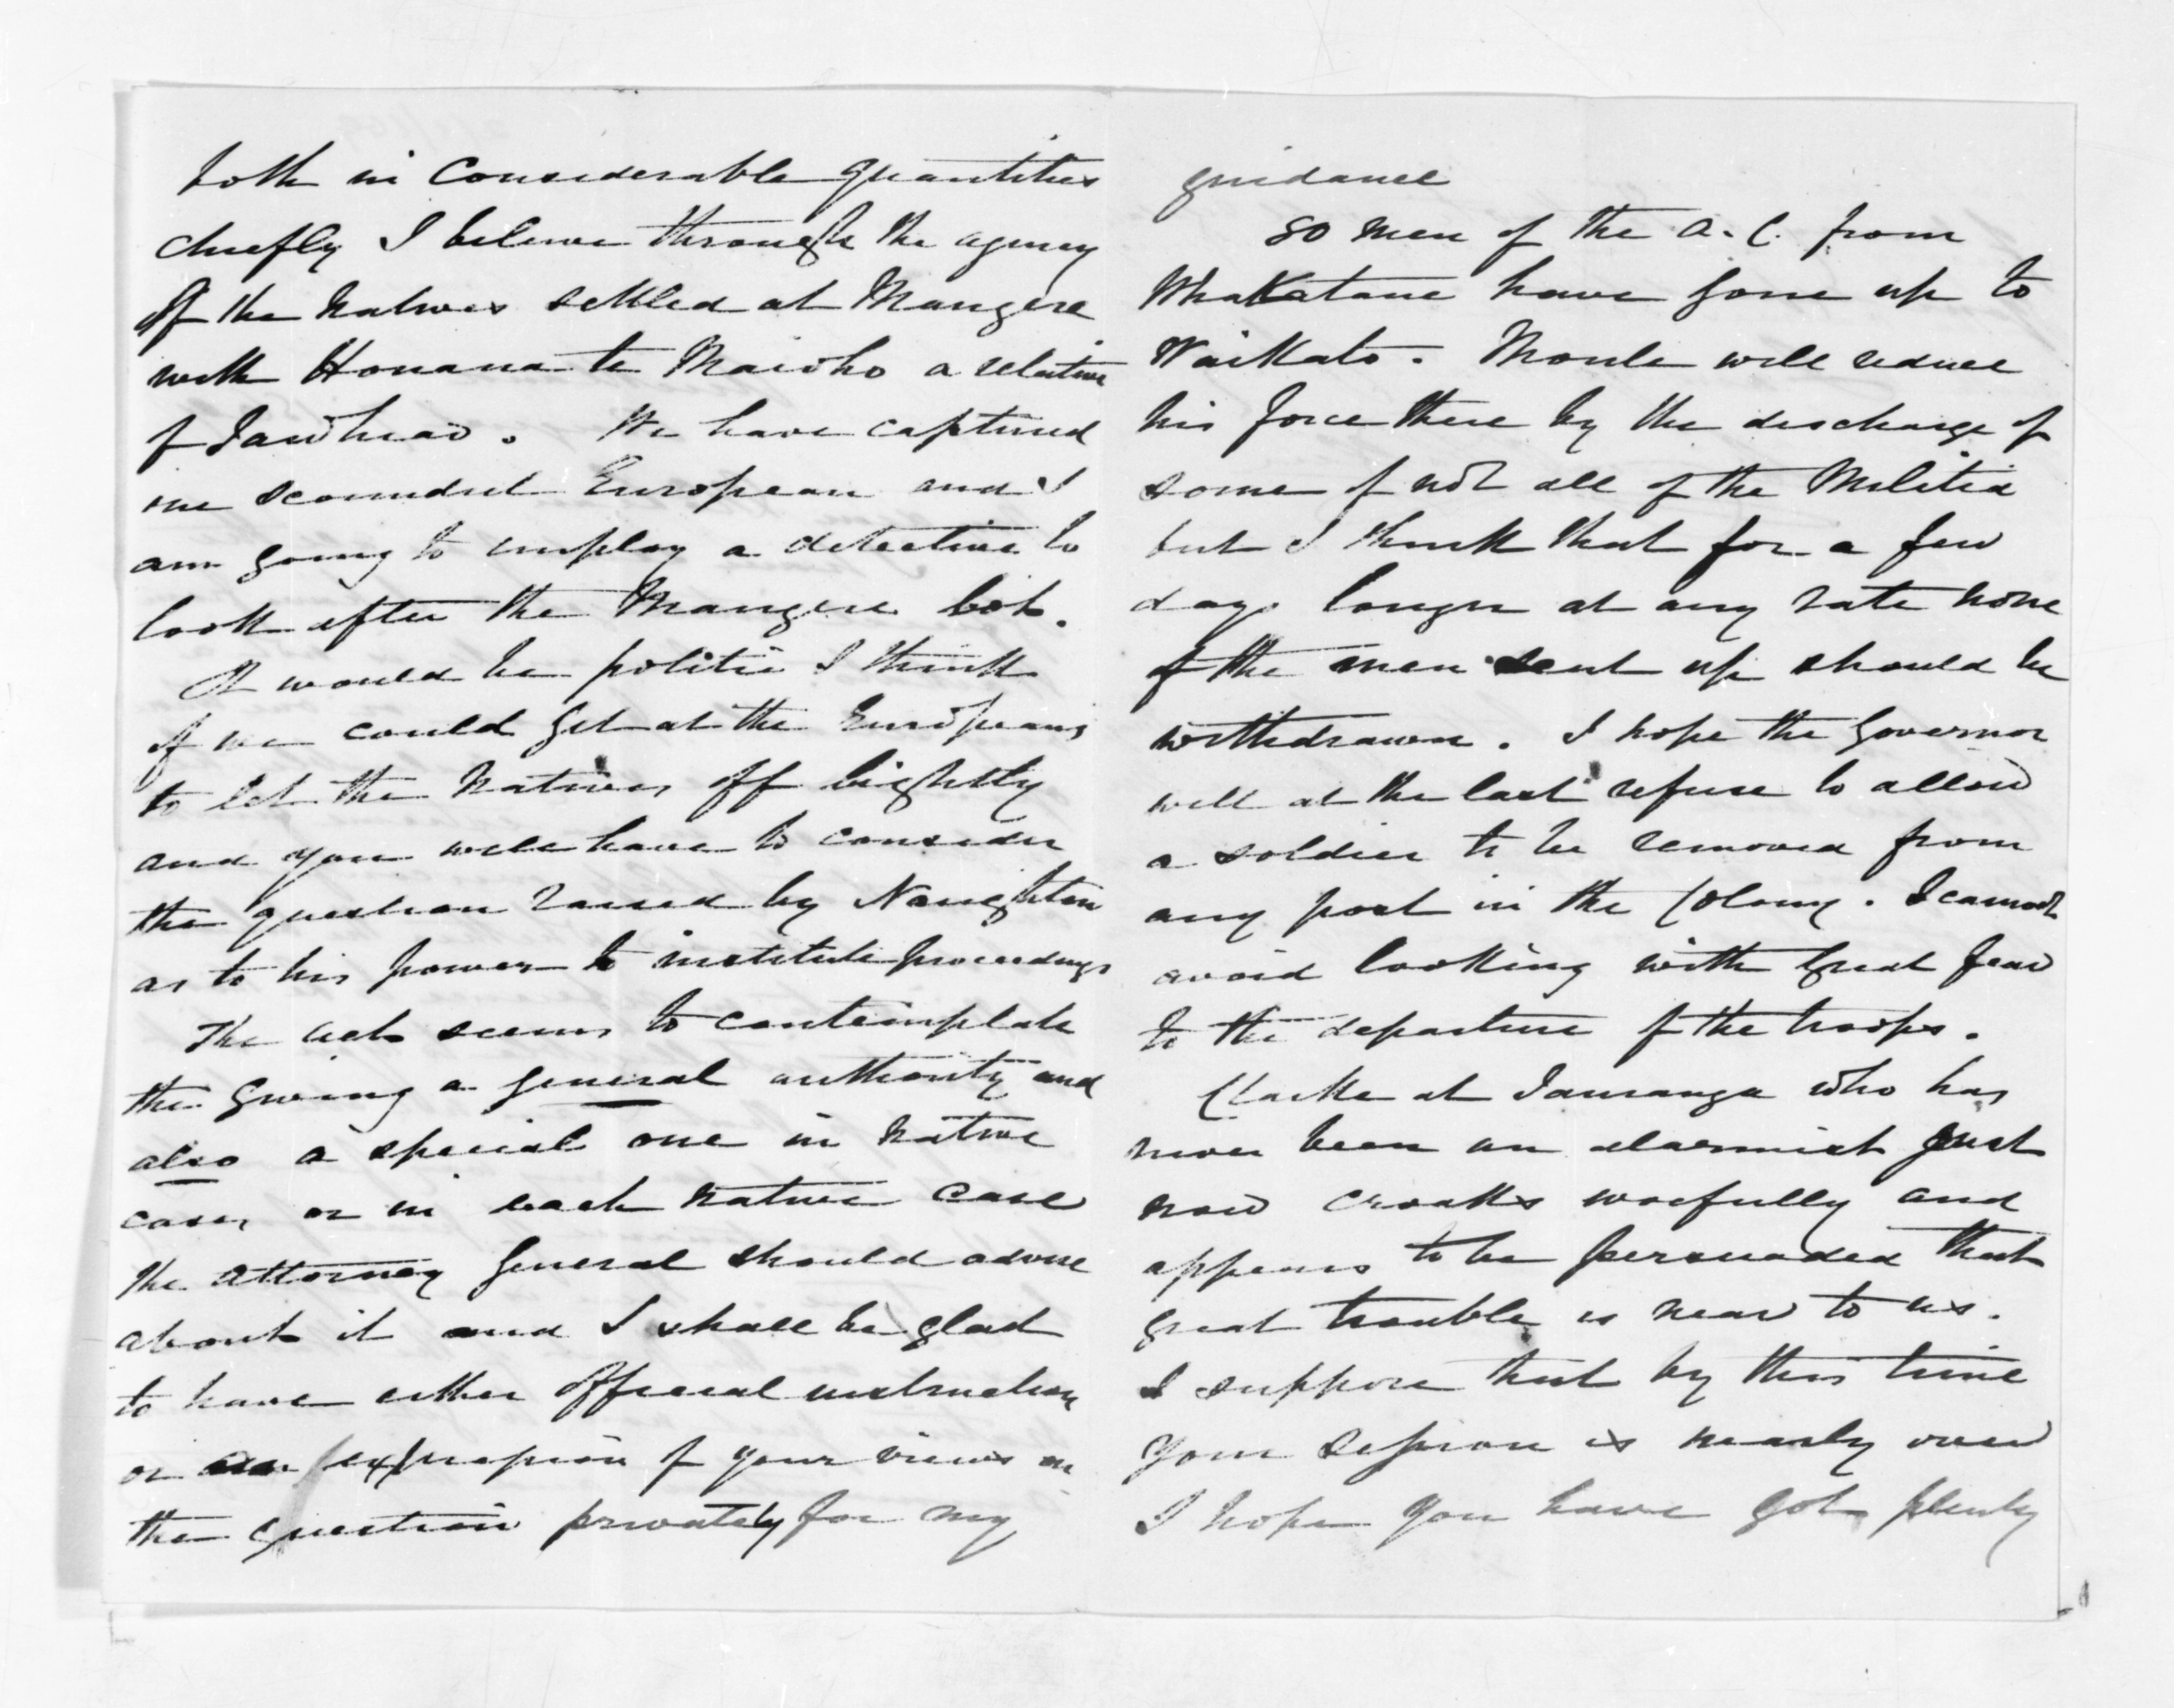 both in Considerable quantities
chiefly I believe through the agency
of the Natives settled at Mangere
with Honana te Maioho a relative
of Tawhiao. We have captured
one scoundrel European and I
am going to employ a detective to
look after the Mangere lot.
It would be politic I think
if we could get at the Europeans
to let the Natives off lightly
and you will have to consider
the question raised by Naughton
as to his power to institute proceedings
The act seems to contemplate
the giving a general authority and
also a special one in Native
cases or in each Native case
the Attorney General should advise
about it and I shall be glad
to have either official instructions
or an expression of your views on
the question privately for my
guidance
80 men of the A. C. from
Whakatane have gone up to
Waikato. Moule will reduce
his force there by the discharge of
some if not all of the Militia
but I think that for a few
days longer at any rate none
of the men sent up should be
withdrawn. I hope the Governor
will at the last refuse to allow
a soldier to be removed from
any post in the Colony. I cannot
avoid looking with great fear
to the departure of the troops.
Clarke at Tauranga who has
never been an alarmist just
now croaks woefully and
appears to be persuaded that
great trouble is near to us.
I suppose that by this time
your session is nearly over
I hope you have got plenty